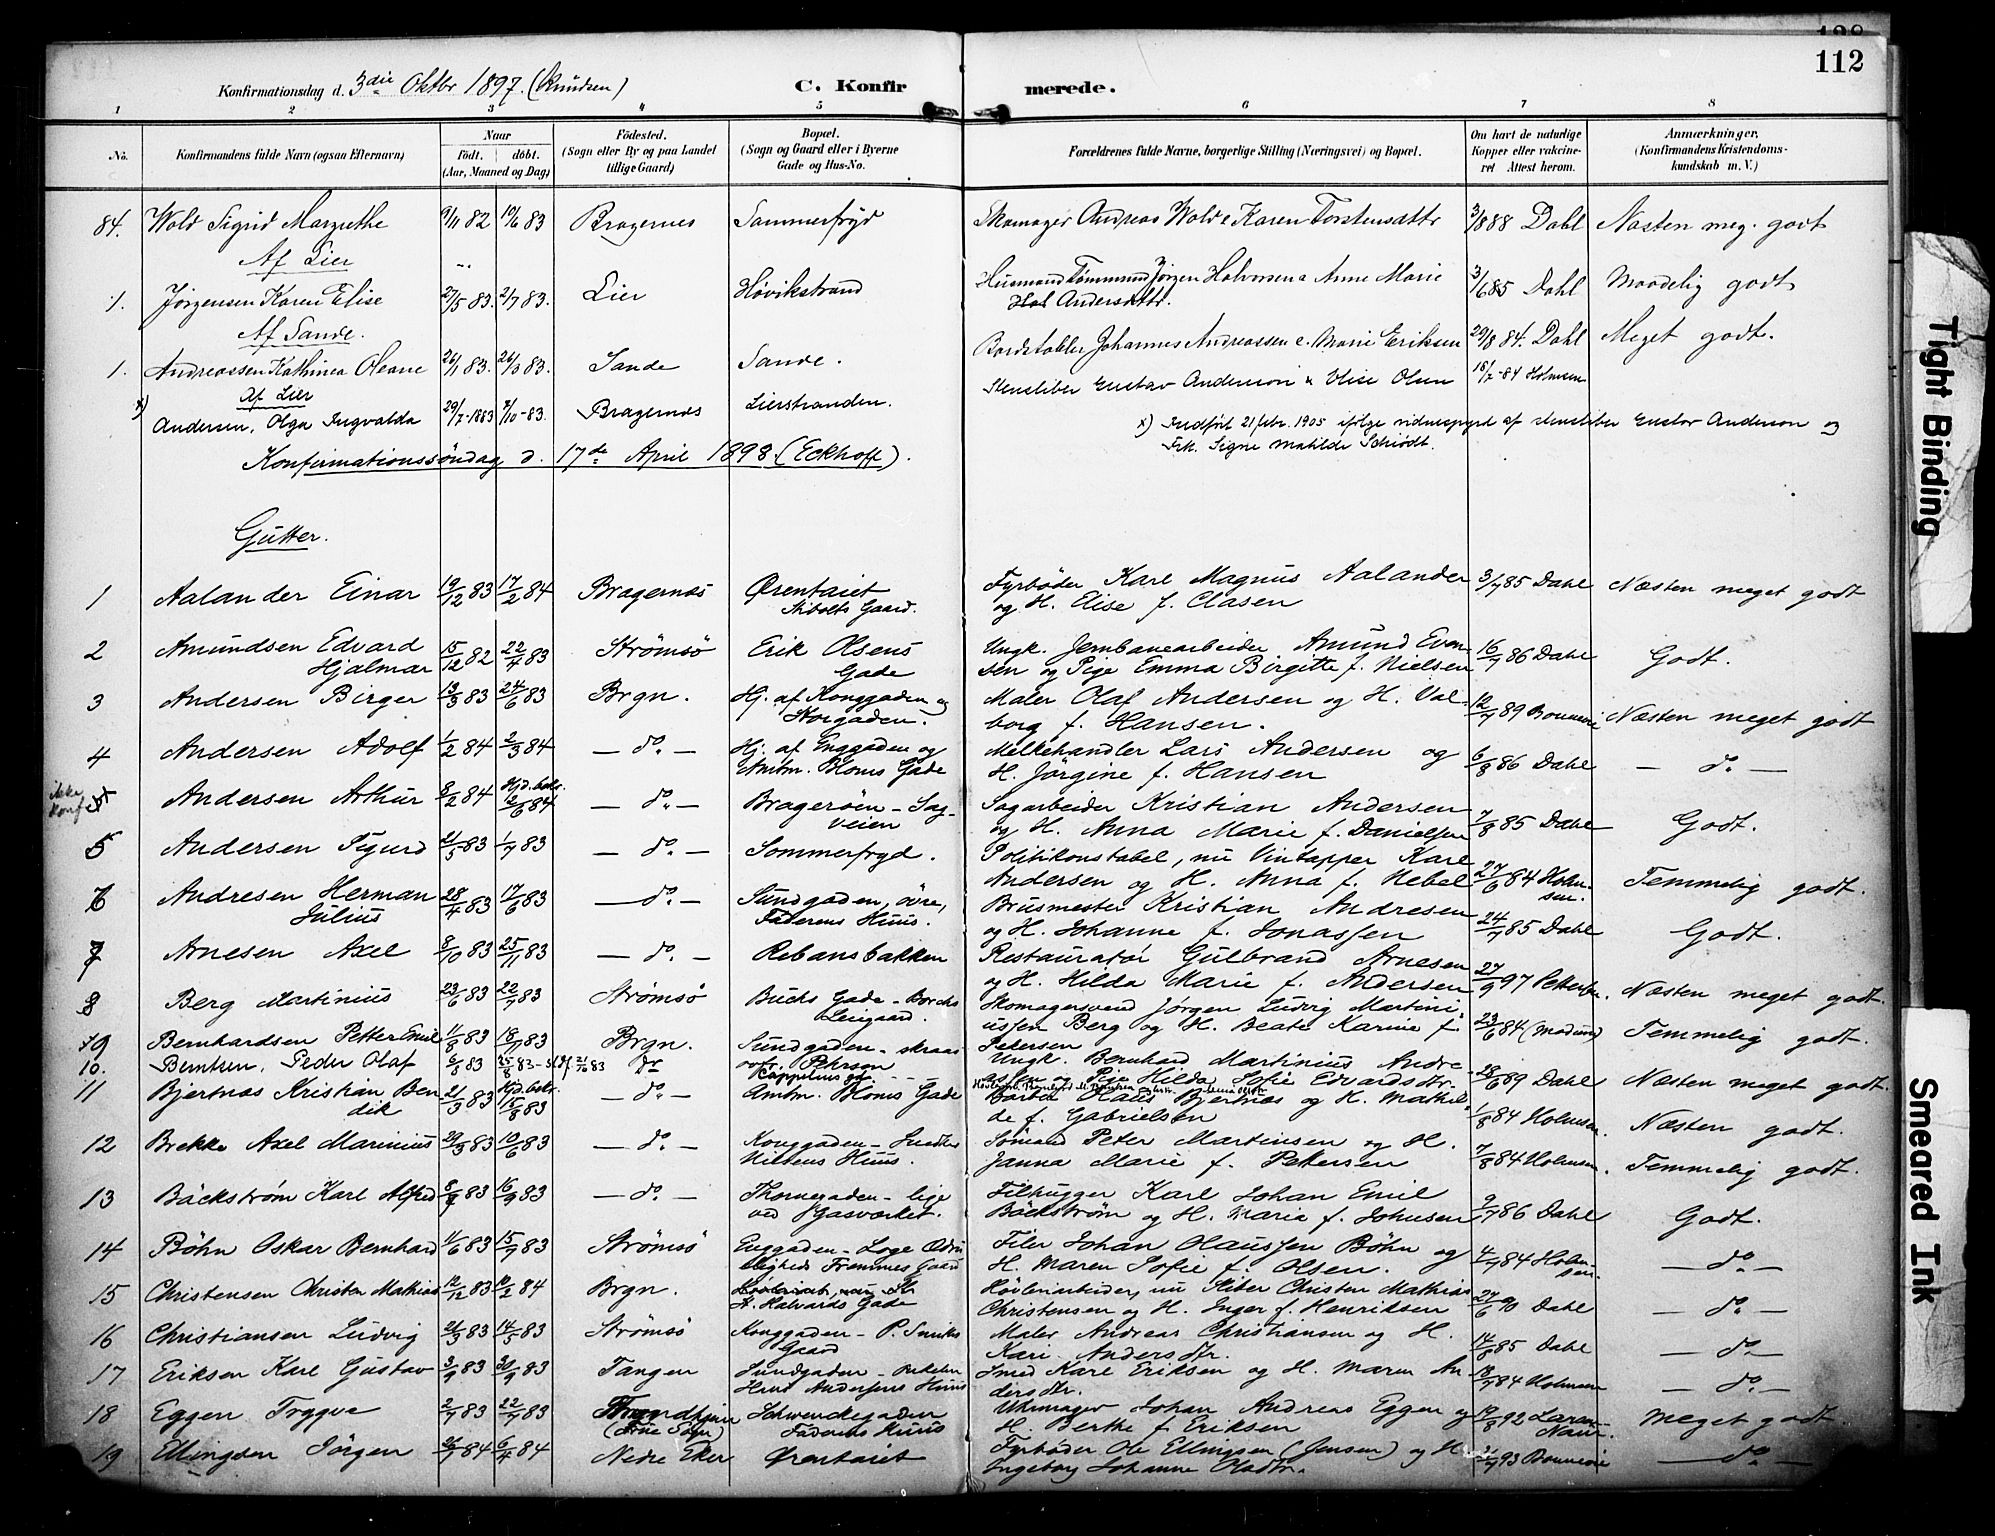 112
Konfirmationsdag d. 3die Oktbr 1897. (Knudsen) C. Konfirmerede.
1 2 3 4 5 6 7 8
No. Konfirmandens fulde Navn (ogsaa Efternavn) Naar födt. döbt. (Aar, Maaned og Dag) Födested. (Sogn eller By og paa Landet tillige Gaard) Bopæl. (Sogn og Gaard eller i Byerne Gade og Hus-No. Forældrenes fulde Navne, borgerlige Stilling (Næringsvei) og Bopæl. Om havt de naturlige Kopper eller vakcineret Attest herom. Anmærkninger. (Konfirmandens Kristendomskundskab m. V.)
84. Wold Sigrid Margrethe 9/11 82 10/6 83 Bragernes Sommerfryd Skomager Andreas Wold & Karen Torstensdttr 3/8 88 Dahl Næsten meg. godt
Af Lier
1. Jørgensen Karen Elise 27/5 83. 2/7 83. Lier Høvikstrand Husmand Tømmermd Jörgen Halvorsen & Anne Marie Andersdttr. 3/6 85 Dahl Maadelig godt
Af Sande.
1. Andreassen Kathinca Oleane 26/1 83. 26/3 83. Sande Sande. Bordstabler Johannes Andreassen & Marie Eriksen 29/8 84. Dahl Meget godt.
Af Lier
x) Andersen, Olga Ingvalda 29/7-1883 7/10-83. Bragernæs Lierstranden. Stenstiber Gustav Anderson & Elise Olsen 18/7-84 Holmsen
x) Indført 21 febr. 1905 ifølge vidnespyrd af stenstiber Gustav Anderson og
Frk. Signe Matilde Schiödt.
Konfirmationssöndag d. 17de April 1898 (Eckhoff).
Gutter.
1 Aalander Einar 19/12 83 17/2 84 Bragernæs Ørentaiet Stibolts Gaard. Fyrböder Karl Magnus Aalander og H. Elise f. Clasen 3/7 85 Dahl Næsten meget godt
2 Amundsen Edvard Hjalmar 15/12 82 22/4 83 Strömsö Erik Olsens Gade Ungk. Jernbanearbeider Amund Evensen og Pige Emma Birgitte f. Nielsen 16/7 86 Dahl Godt.
3 Andersen Birger 13/3 83 24/6 83 Brgn. Hj. af Konggaden og Storgaden. Maler Olaf Andersen og H. Valborg f. Hansen. 12/7 89 Næsten meget godt
4 Andersen Adolf 1/2 84 2/3 84 — do. — Hj. af Enggaden og Amtm. Bloms Gade Melkehandler Lars Andersen og H. Jörgine f. Hansen 6/8 86 Dahl — do. —
ikke konf. Andersen Arthur 8/2 84 Hjd. bekr. 12/6 84 — do. — Bragerøen - Sagveien Sagarbeider Kristian Andersen og H. Anna Marie f. Danielsen 7/8 85 Dahl Godt.
5 Andersen Sigurd 21/5 83 1/7 83 — do. — Sommerfryd. Politikonstabel, nu Vintapper Karl Andersen og H. Anna f. Nebel 27/6 84 Holmsen. Temmelig godt.
6 Andresen Herman Julius 28/4 83 17/6 83 — do. — Sundgaden, övre, Faderens Huus. Brusmester Kristian Andresen og H. Johanne f. Jonassen 24/7 85 Dahl Godt.
7 Arnesen Axel 8/10 83 25/11 83 — do. — Rebansbakken Restauratör Gulbrand Arnesen og H. Hilda Marie f. Andersen 27/9 97 Næsten meget godt.
8 Berg Martinius 23/6 83 22/7 83 Strömsö Buchs Gade - Borchs Leiegaard. Skomagersvend Jörgen Ludvig Martiniussen Berg og H. Beate Karine f. Petersen 23/6 84 Temmelig godt.
9 Bernhardsen Petter Emil 11/8 83 18/7 83 Brgn. Sundgaden - skraas Ungk. Bernhard Martinius Andreassen og Pige Hilda Sofie Edvardsdtr. 28/6 89 Dahl Næsten meget godt.
10. Berntsen, Peder Olaf 6/8 83 do
11 Bjertnæs Kristian Bendik 21/3 83 Hjd. bekr. 15/8 83 — do. — Amtm. Bloms Gade Olaus Bjertnæs og H. Mathilde f. Gabrielsen 1/8 84 Holmsen. Næsten godt.
12 Brekke Axel Marinius 29/3 83 10/6 83 — do. — Konggaden - Snedker Nilsens Huus. Sömand Peter Martinsen og H. Janna Marie f. Pettersen 7/8 84 Holmsen. Temmelig godt.
13 Bäckström Karl Alfred 8/7 83 16/9 83 — do. — Thornegaden - lige ved Gasværket. Filhugger Karl Johan Emil Bäckström og H. Maria f. Johnsen 9/7 86 Dahl Godt.
14 Böhn Oskar Bernhard 11/6 83 15/7 83 Strömsö Enggaden - Loge Ædrueligheds Fremmes Gaard Filer Johan Olaussen Böhn og H. Maren Sofie f. Olsen. 4/7 84 Holmsen. — do. —
15 Christensen Christen Mathias 12/12 83 10/2 84 Brgn. St. Halvards Gade Høvleriarbeider, nu Stiber Christen Mathias Christensen og H. Inger f. Henriksen 27/6 90 Dahl — do. —
16 Christiansen Ludvig 21/3 83 14/5 83 Strömsö Konggaden - P. Smiths Gaard Maler Andreas Christiansen og H. Kari Andersdtr. 14/8 85 Dahl — do. —
17 Eriksen Karl Gustav 3/9 83 30/9 83 Tangen Sundgaden - Enkefru Andersens Huus Smed Karl Eriksen og H. Maren Andersdtr. 12/7 84 Holmsen — do. —
18 Eggen Trygve 2/7 83 22/7 83 Trondhjem (Frue Sogn) Schwenckegaden Faderens Huus Uhrmager Johan Andreas Eggen og H. Berthe f. Eriksen 19/8 92 Meget godt
19 Ellingsen Jörgen 24/1 84 6/4 84 Nedre Eker Ørentaiet Fyrböder Ole Ellingsen (Jensen) og H. Ingeborg Johanne Olsdtr. 21/7 93 — do. —
Tight Binding
Smeared Ink